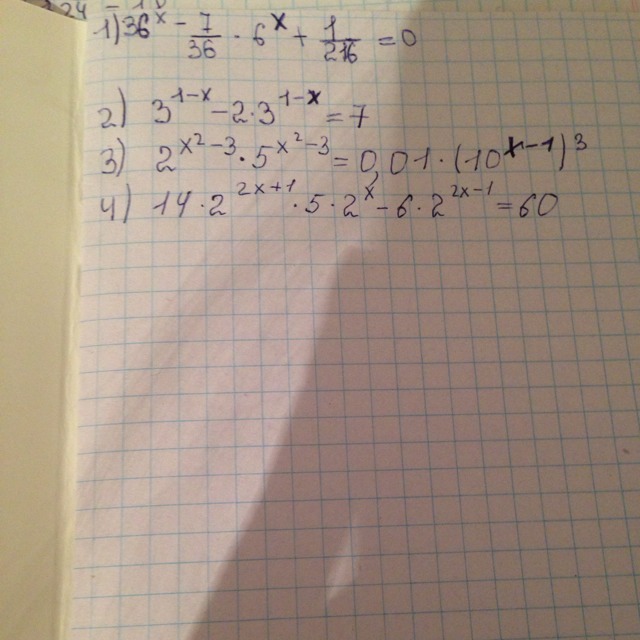 1) 36^x − 7/36 · 6^x + 1/216 = 0
2) 3^(1−x) − 2·3^(1−x) = 7
3) 2^(x²−3) · 5^(x²−3) = 0,01 · (10^(x−1))³
4) 14 · 2^(2x+1) · 5 · 2^x − 6 · 2^(2x−1) = 60